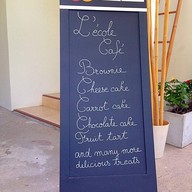 L'école
Café
Brownie
Cheese cake
Carrot cake
Chocolate cake
Fruit tart
and many more
delicious treats